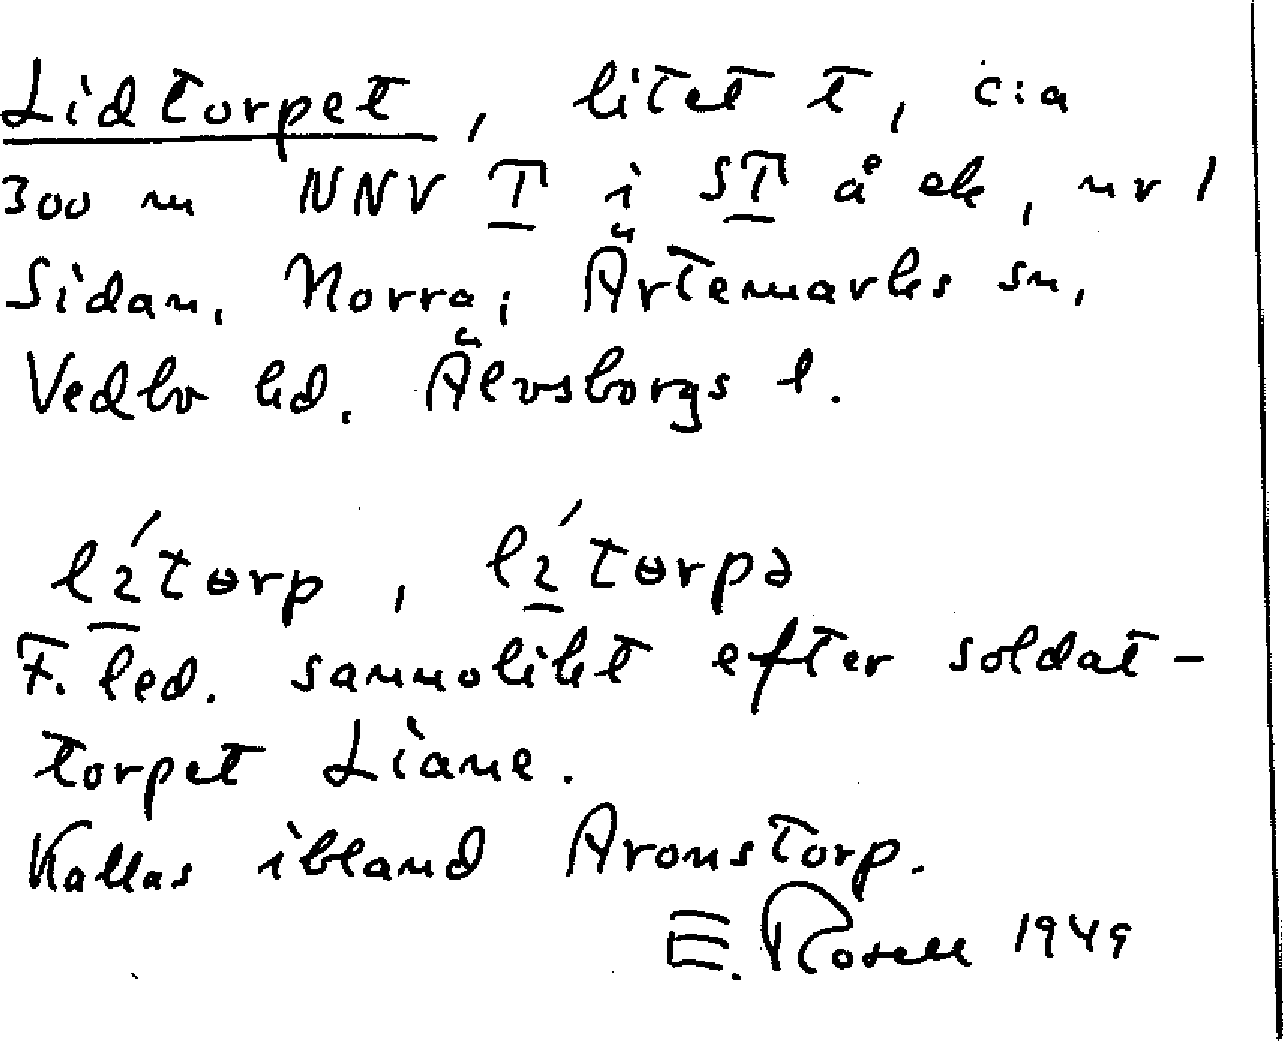 Lidtorpet, litet t, c:a
300 m NNV T i ST å ek, nr 1
Sidan, Norra; Ärtemarks sn,
Vedbo hd. Älvsborgs l.
lítorp, lítorpə
F. led. sannolikt efter soldat-
torpet Liane.
Kallas ibland Aronstorp.
E. Rosell 1949